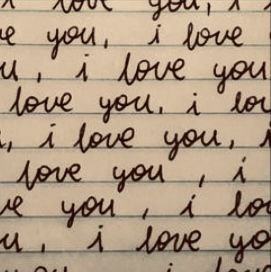 i love you, i
e you, i love
u, i love you
love you, i lov
, i love you, i
love you, i
ve you, i lo
u, i love yo